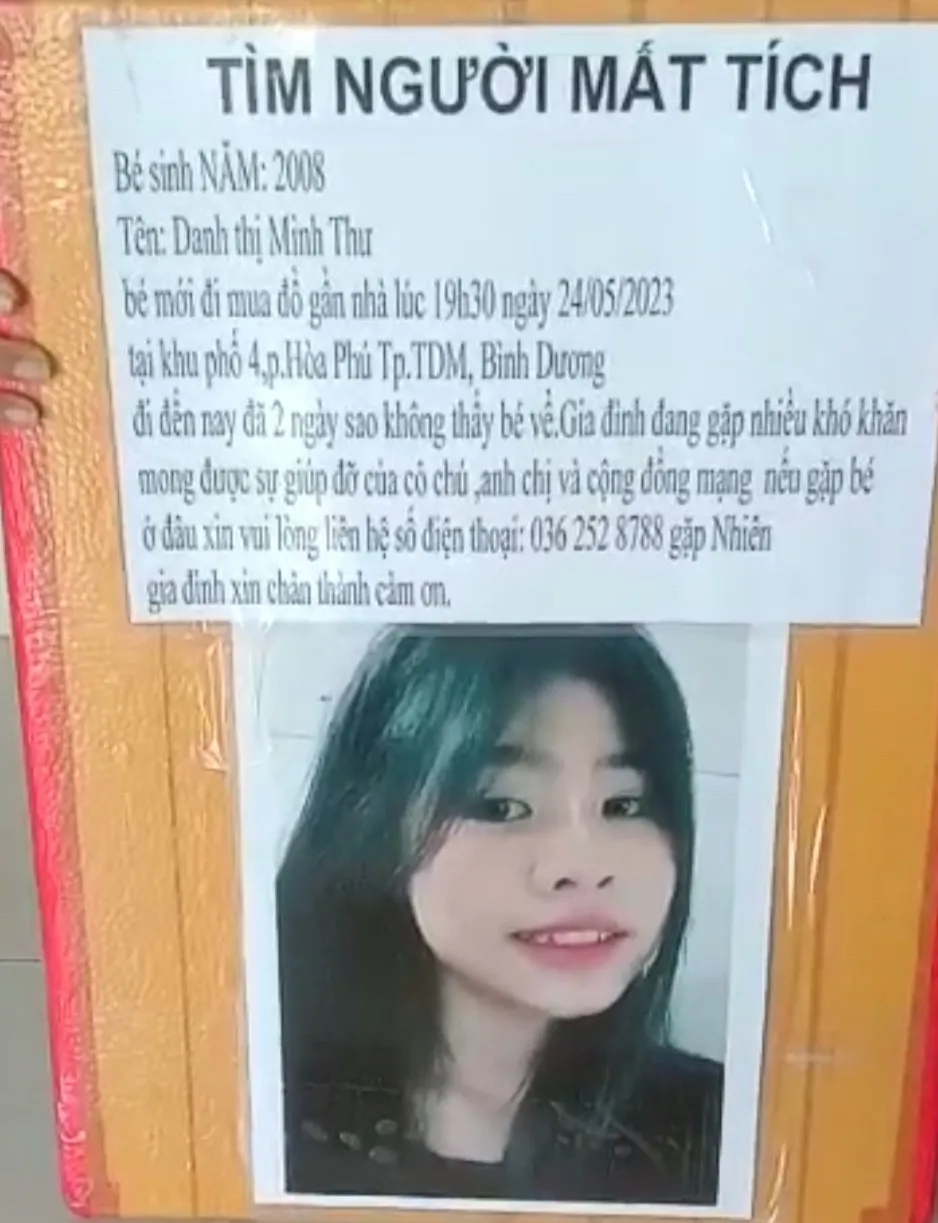 TÌM NGƯỜI MẤT TÍCH
Bé sinh NĂM: 2008
Tên: Danh thị Minh Thư
bé mới đi mua đồ gần nhà lúc 19h30 ngày 24/05/2023
tại khu phố 4,p.Hòa Phú Tp.TDM, Bình Dương
đi đến nay đã 2 ngày sao không thấy bé về.Gia đình đang gặp nhiều khó khăn
mong được sự giúp đỡ của cô chú ,anh chị và cộng đồng mạng nếu gặp bé
ở đâu xin vui lòng liên hệ số điện thoại: 036 252 8788 gặp Nhiên
gia đình xin chân thành cảm ơn.